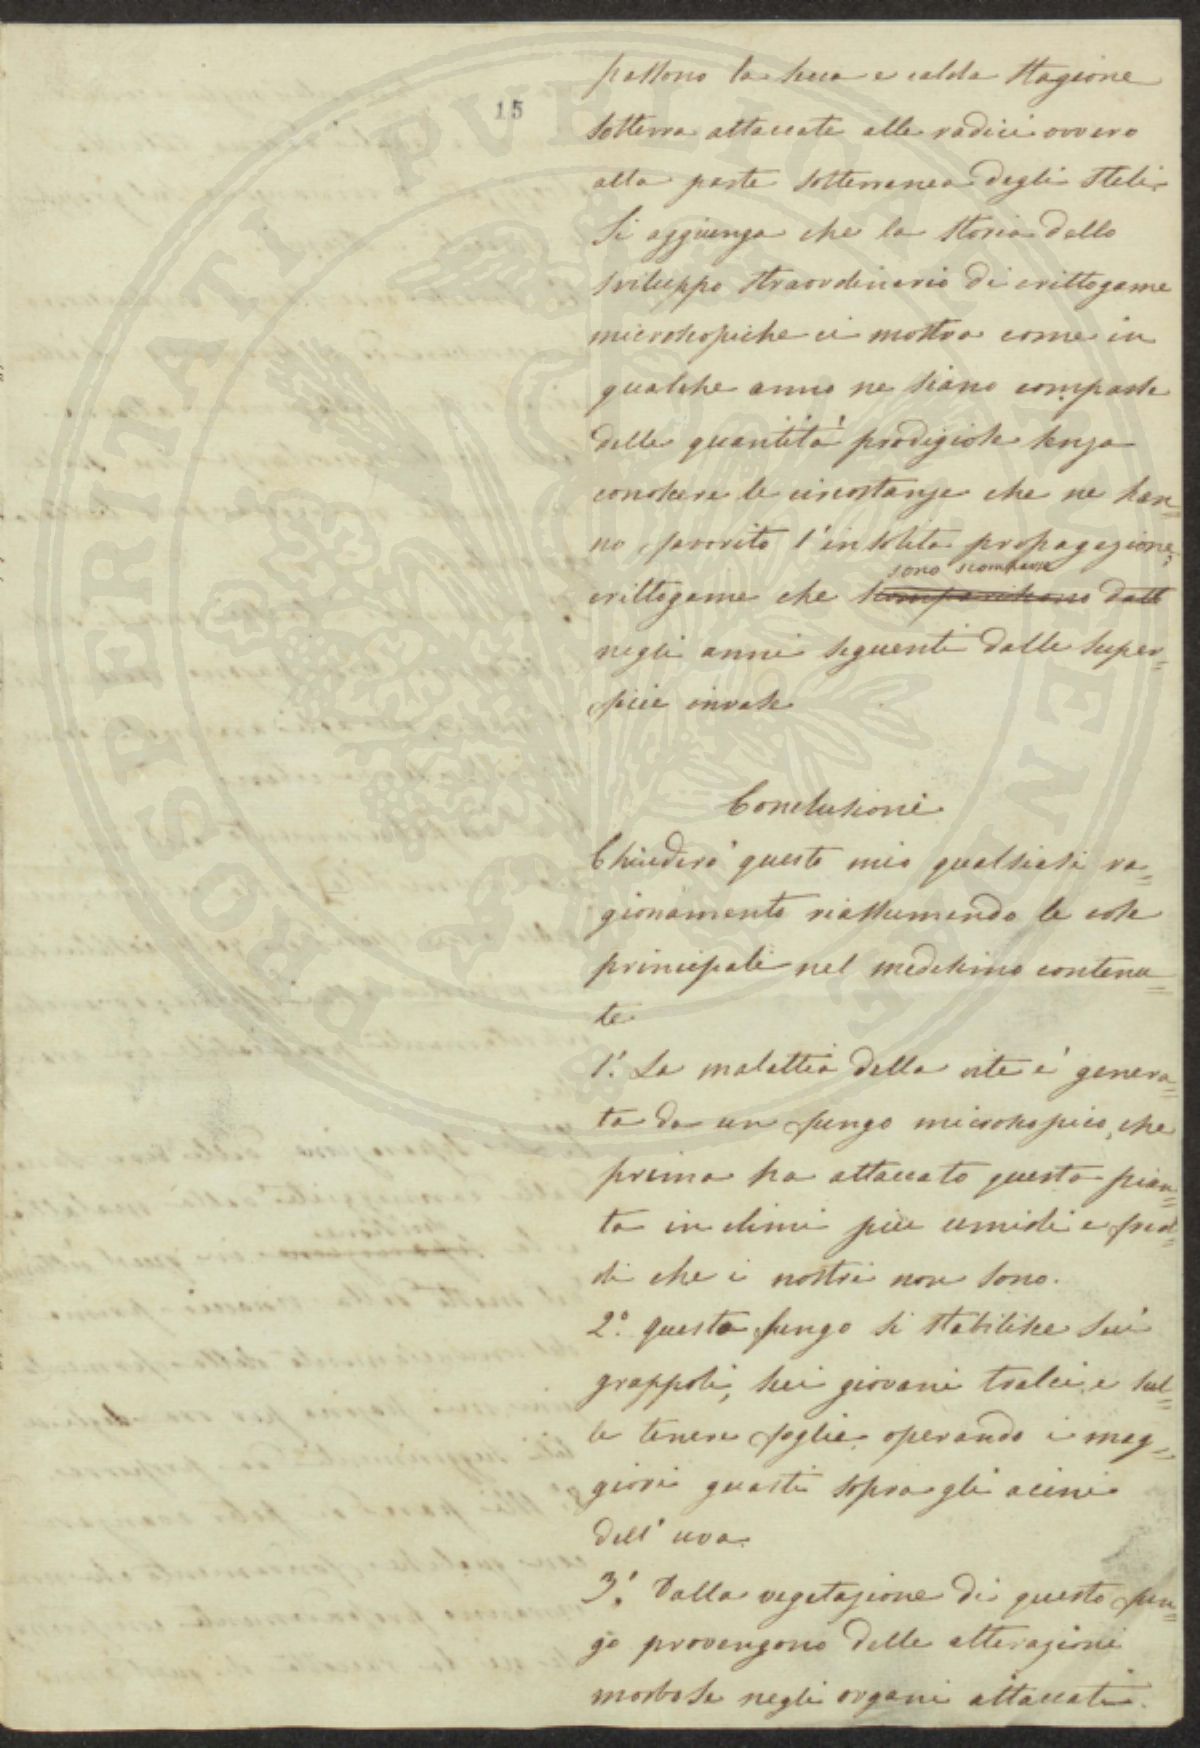 15
passono la secca e calda stagione
sotterra attaccate alle radici ovvero
alla parte sotterranea degli steli.
Si aggiunga che la storia dello
sviluppo straordinario di crittogame
microscopiche ci mostra come in
qualche anno ne siano comparse
delle quantità prodigiose senza
conoscere le circostanze che ne han=
no favorito l'insolita propagazione;
sono scomparse
crittogame che scompariscono dall
negli anni seguenti dalle super=
ficie invase
Conclusioni
Chiuderò questo mio qualsiasi ra=
gionamento riassumendo le cose
principali nel medesimo contenu=
te
1.° La malattia della vite è genera=
ta da un fungo microscopico, che
prima ha attaccato questa pian=
ta in climi più umidi e fred=
di che i nostri non sono.
2.° questo fungo si stabilisce sui
grappoli, sui giovani tralci, e sul=
le tenere foglie operando i mag=
giori guasti sopra gli acini
dell'uva.
3.° Dalla vegetazione di questo fun=
go provengono delle alterazioni
morbose negli organi attaccati.
PROSPERITATI PVBLICAE AVGENDAE